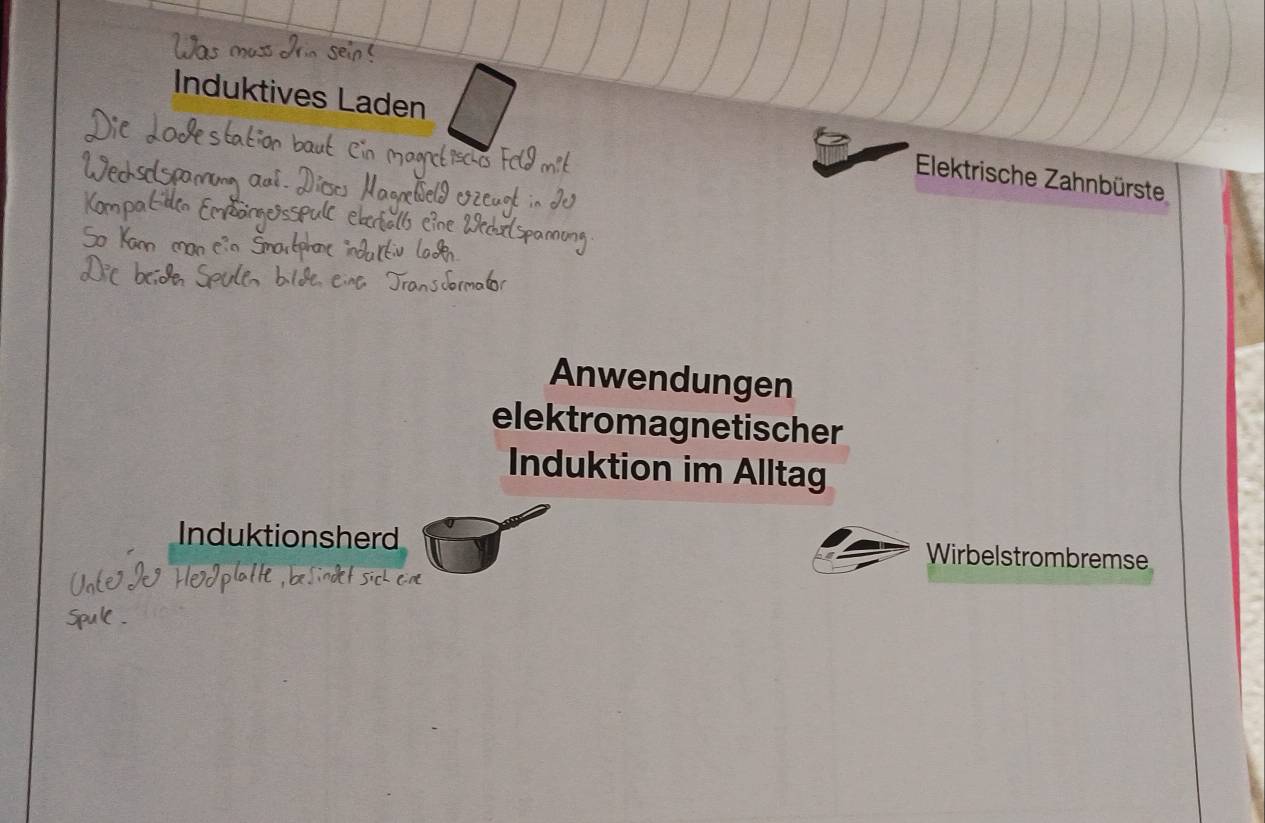 Was muss drin sein?
Induktives Laden
Die Ladestation baut ein magnetisches Feld mit
Wechselspannung auf. Dieses Magnetfeld erzeugt in der
Kompatiblen Empfängerspule ebenfalls eine Wechselspannung.
So kann man ein Smartphone induktiv laden.
Die beiden Spulen bilden einen Transformator
Elektrische Zahnbürste
Anwendungen
elektromagnetischer
Induktion im Alltag
Induktionsherd
Unter der Herdplatte, befindet sich eine
Spule.
Wirbelstrombremse